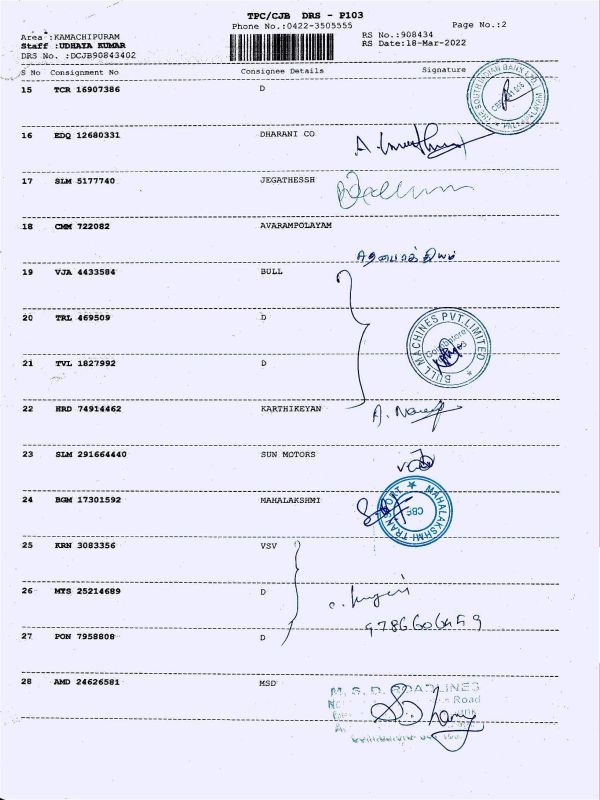 TPC/CJB DRS - P103
Phone No.:0422-3505555
Page No.:2
Area :KAMACHIPURAM
RS No.:908434
Staff :UDHAYA KUMAR
RS Date:18-Mar-2022
DRS No. :DCJB90843402
S No Consignment No Consignee Details Signature
15 TCR 16907386 D
16 EDQ 12680331 DHARANI CO
17 SLM 5177740 JEGATHESSH
18 CMM 722082 AVARAMPOLAYAM
19 VJA 4433584 BULL
20 TRL 469509 D
BULL MACHINES PVT.LIMITED
21 TVL 1827992 D
22 HRD 74914462 KARTHIKEYAN
23 SLM 291664440 SUN MOTORS
24 BGM 17301592 MAHALAKSHMI
MAHALAKSHMI TRANSPORT
CBE
25 KRN 3083356 VSV
26 MTS 25214689 D
27 PON 7958808 D
28 AMD 24626581 MSD
M. S. D. ROADLINES
Road